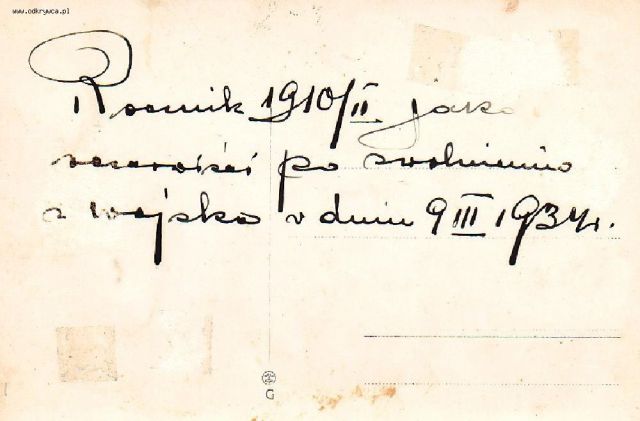 www.odkrywca.pl
Rocznik 1910/II jako
rezerwiści po zwolnieniu
z wojska w dniu 9 III 1934r.
G